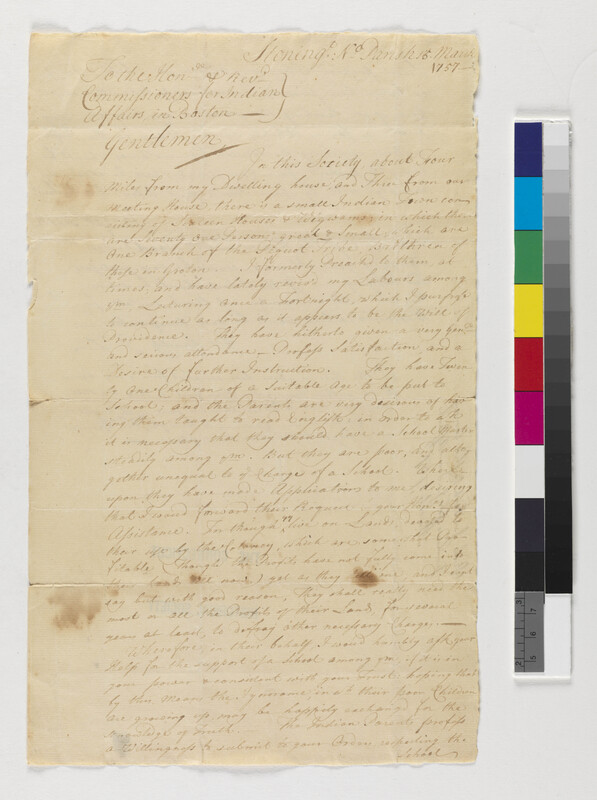 Stoningt. No. Parish 15. March
1757—
To the Honle. & Revd.
Commissioners for Indian
Affairs, in Boston —
Gentlemen
In this Society about Four
Miles from my Dwelling house, and Three from our
meeting House, there is a small Indian Town con-
sisting of Sixteen Houses & Wigwams, in which there
are Seventy One Persons, great & small, which are
One Branch of the Pequot Tribe, Bredthren of
those in Groton. I formerly Preached to them at
times, and have lately reviv'd my Labours among
ym. Lecturing Once a Fortnight, which I purpose
to continue as long as it appears to be the Will of
Providence. They have hitherto given a very
and serious attendance — Profess Satisfaction, and a
Desire of further Instruction. They have Twen-
ty One Children of a Suitable Age to be put to
School, and the Parents are very desirous of hav-
ing them taught to read English, in order to wch
it is necessary that they should have a School Master
steadily among ym. But they are poor, and alto-
gether unequal to ye Charge of a School. Where-
upon they have made Application to me, desiring
that I would forward their Request your
Assistance. For though they live on Lands, to
their use by the Colony, which are somewhat
fitable (Though the Profits have not fully come into
yet as they and I
say but with good reason, They shall really need the
most or all the Profits of their Land, for several
years at least, to defray other necessary Charges. —
Wherefore, on their behalf, I would humbly ask your
Help for the support of a School among ym, if it is in
your power & consistent with your Trust; hoping that
by this Means the Ignorance, in wch. their poor Children
are growing up, may be happily exchang'd for the
knowledge of Truth. The Indian Parents profess
a Willingness to submit to your Orders respecting the
School